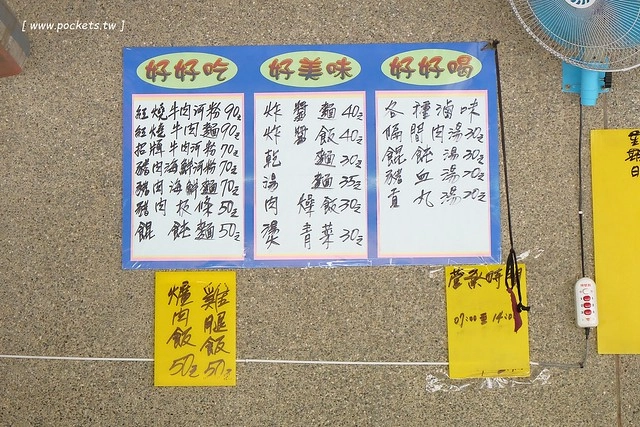 [ www.pockets.tw ]
好好吃
紅燒牛肉河粉90元
紅燒牛肉麵90元
招牌牛肉河粉90元
豬肉海鮮河粉70元
豬肉海鮮麵70元
豬肉板條50元
餛飩麵50元
好美味
炸醬麵40元
炸醬飯40元
乾麵30元
湯麵35元
肉燥飯30元
燙青菜30元
好好喝
各種滷味
隔間肉湯30元
餛飩湯30元
豬血湯20元
貢丸湯20元
爌肉飯50元
雞腿飯50元
營業時間
07:00至14:00
星期日